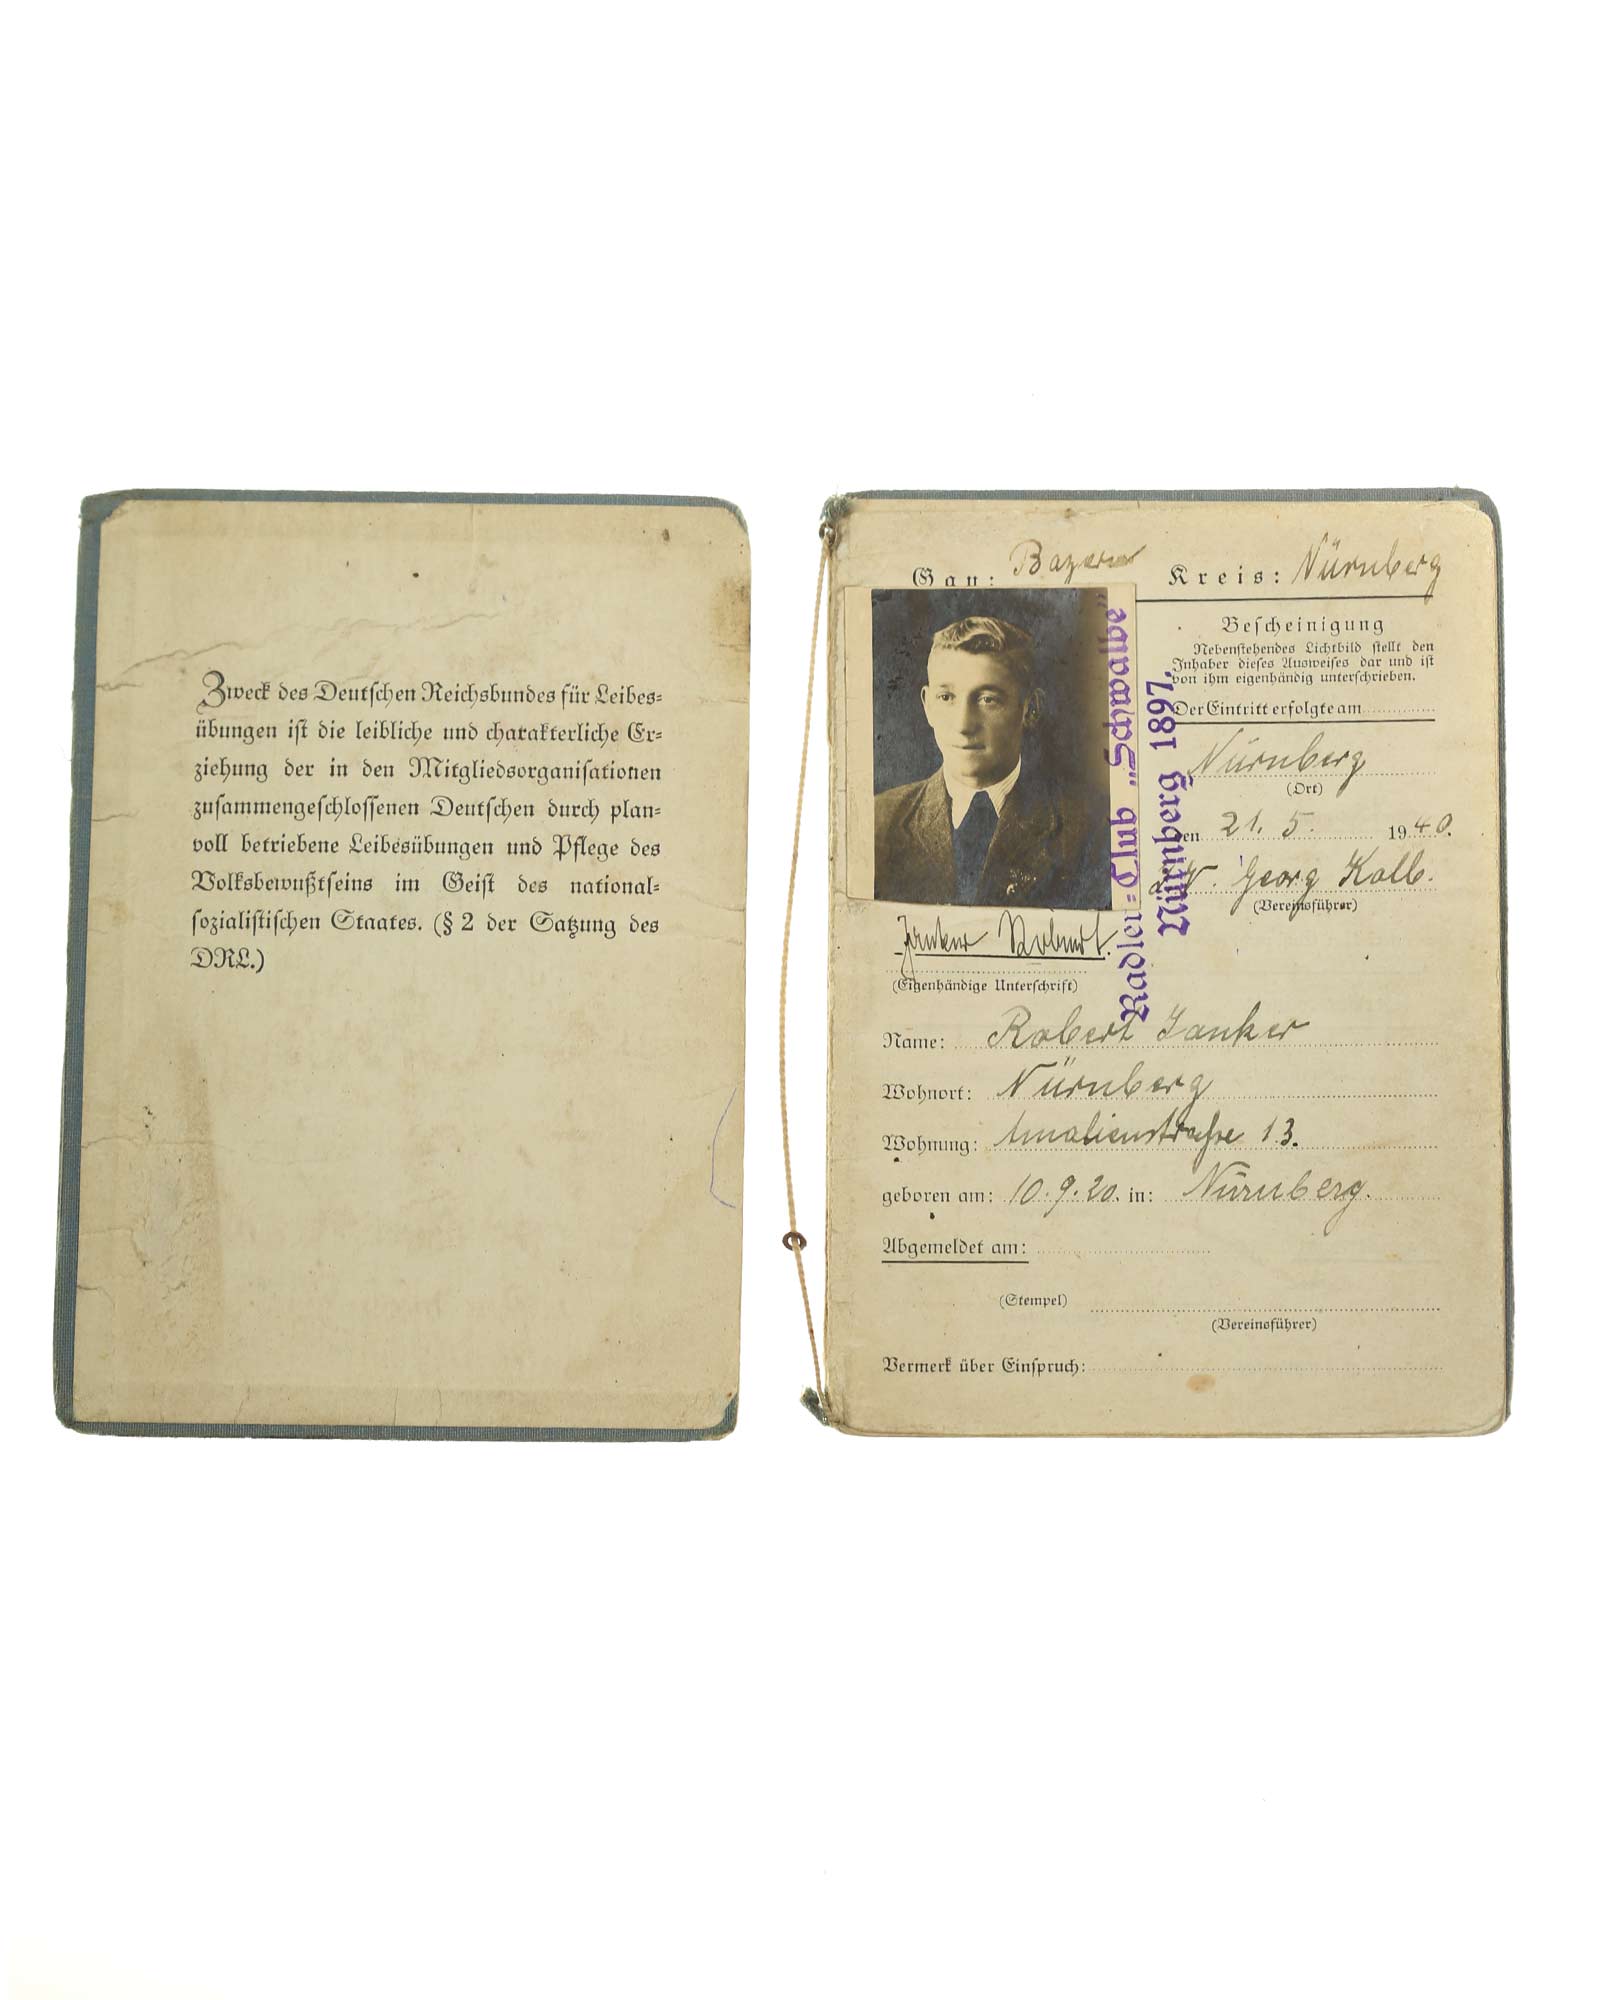 Zweck des Deutschen Reichsbundes für Leibes-
übungen ist die leibliche und charakterliche Er-
ziehung der in den Mitgliedsorganisationen
zusammengeschlossenen Deutschen durch plan-
voll betriebene Leibesübungen und Pflege des
Volksbewußtseins im Geist des national-
sozialistischen Staates. (§ 2 der Satzung des
DRL.)
Gau: Bayern Kreis: Nürnberg
Bescheinigung
Nebenstehendes Lichtbild stellt den
Inhaber dieses Ausweises dar und ist
von ihm eigenhändig unterschrieben.
Der Eintritt erfolgte am
Nürnberg
(Ort)
den 21. 5. 1940.
Georg Kolb.
(Vereinsführer)
Radler-Club „Schwalbe"
Nürnberg 1897.
Janker Robert.
(Eigenhändige Unterschrift)
Name: Robert Janker
Wohnort: Nürnberg
Wohnung: Amalienstraße 13.
geboren am: 10. 9. 20. in: Nürnberg.
Abgemeldet am:
(Stempel)
(Vereinsführer)
Vermerk über Einspruch: